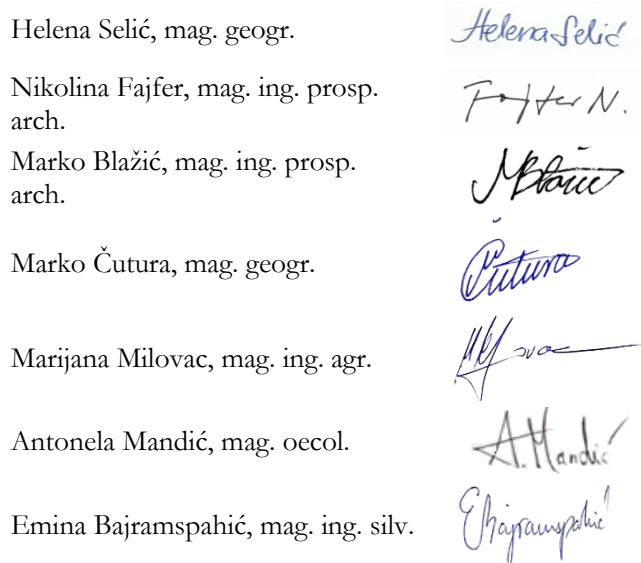 Helena Selić, mag. geogr.
Helena Selić
Nikolina Fajfer, mag. ing. prosp.
arch.
Fajfer N.
Marko Blažić, mag. ing. prosp.
arch.
MBlažić
Marko Čutura, mag. geogr.
Čutura
Marijana Milovac, mag. ing. agr.
Antonela Mandić, mag. oecol.
A. Mandić
Emina Bajramspahić, mag. ing. silv.
EBajramspahić